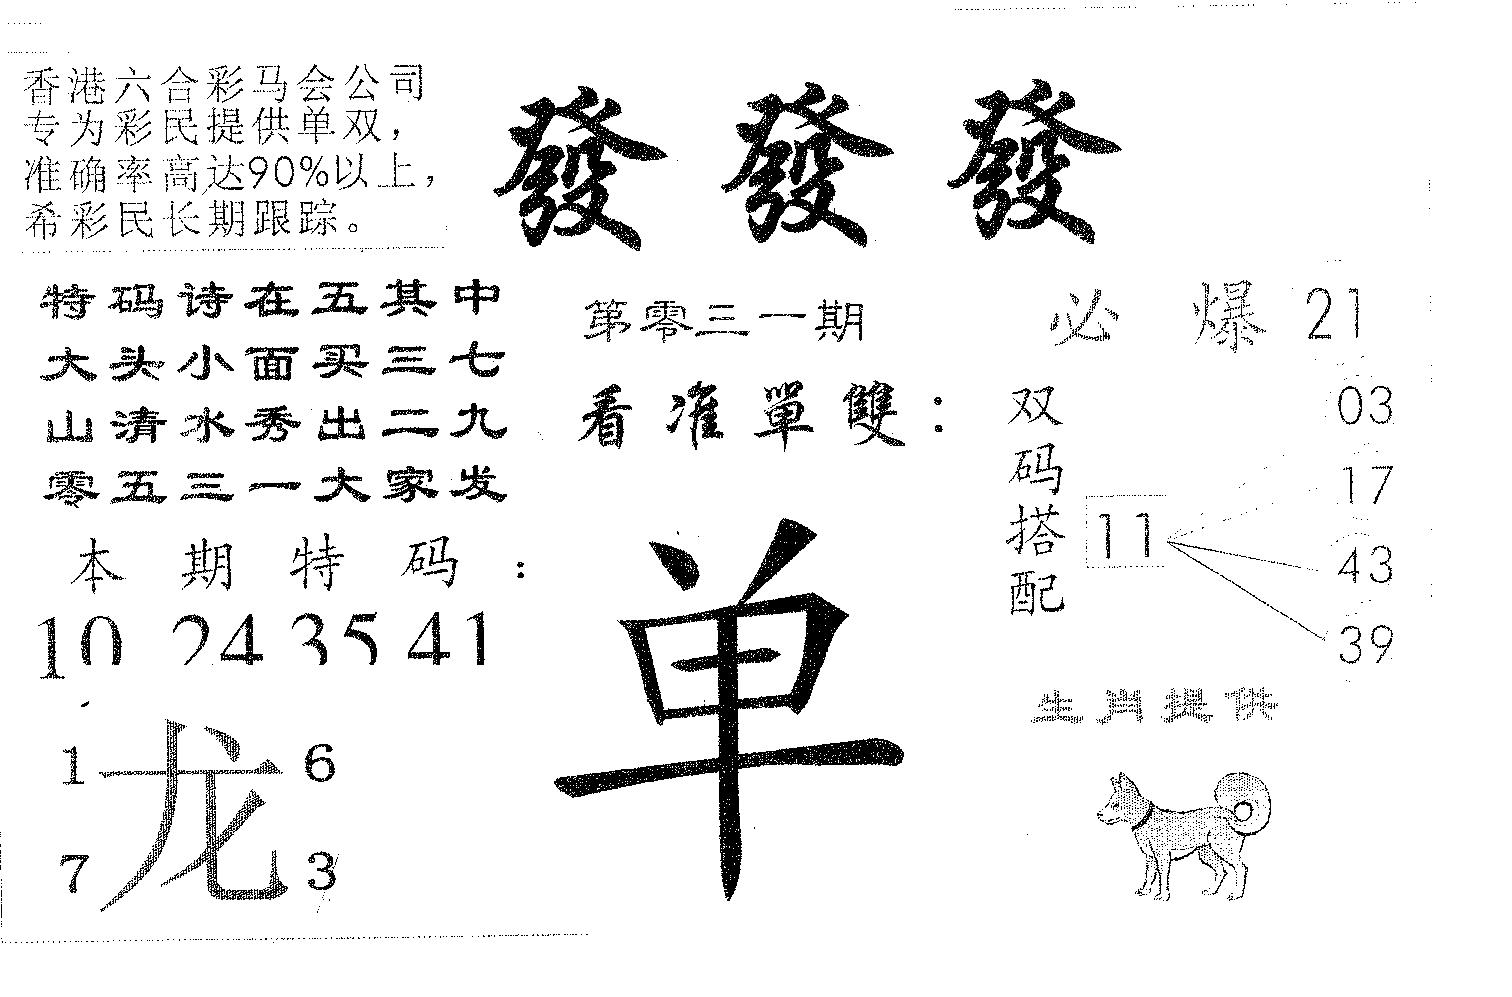 香港六合彩马会公司
专为彩民提供单双，
准确率高达90%以上，
希彩民长期跟踪。
發 發 發
特码诗在五其中
大头小面买三七
山清水秀出二九
零五三一大家发
本期特码：
10 24 35 41
1 龙 6
7 3
第零三一期
看准單雙：
单
必爆21
双码搭配
11
03
17
43
39
生肖提供